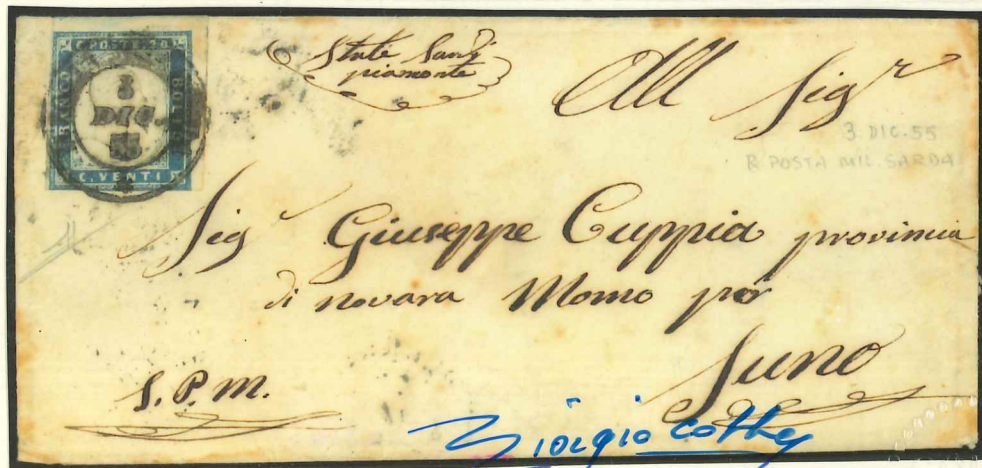 C. POSTE 20
FRANCO
BOLLO
3
DIC.
55
C. VENTI
Stati Sardi
piamonte
All Sigr
3. DIC. 55
R POSTA MIL. SARDA
Sigr Giuseppe Cuppia provincia
di novara Momo per
Suno
S. P. M.
Giorgio Colla